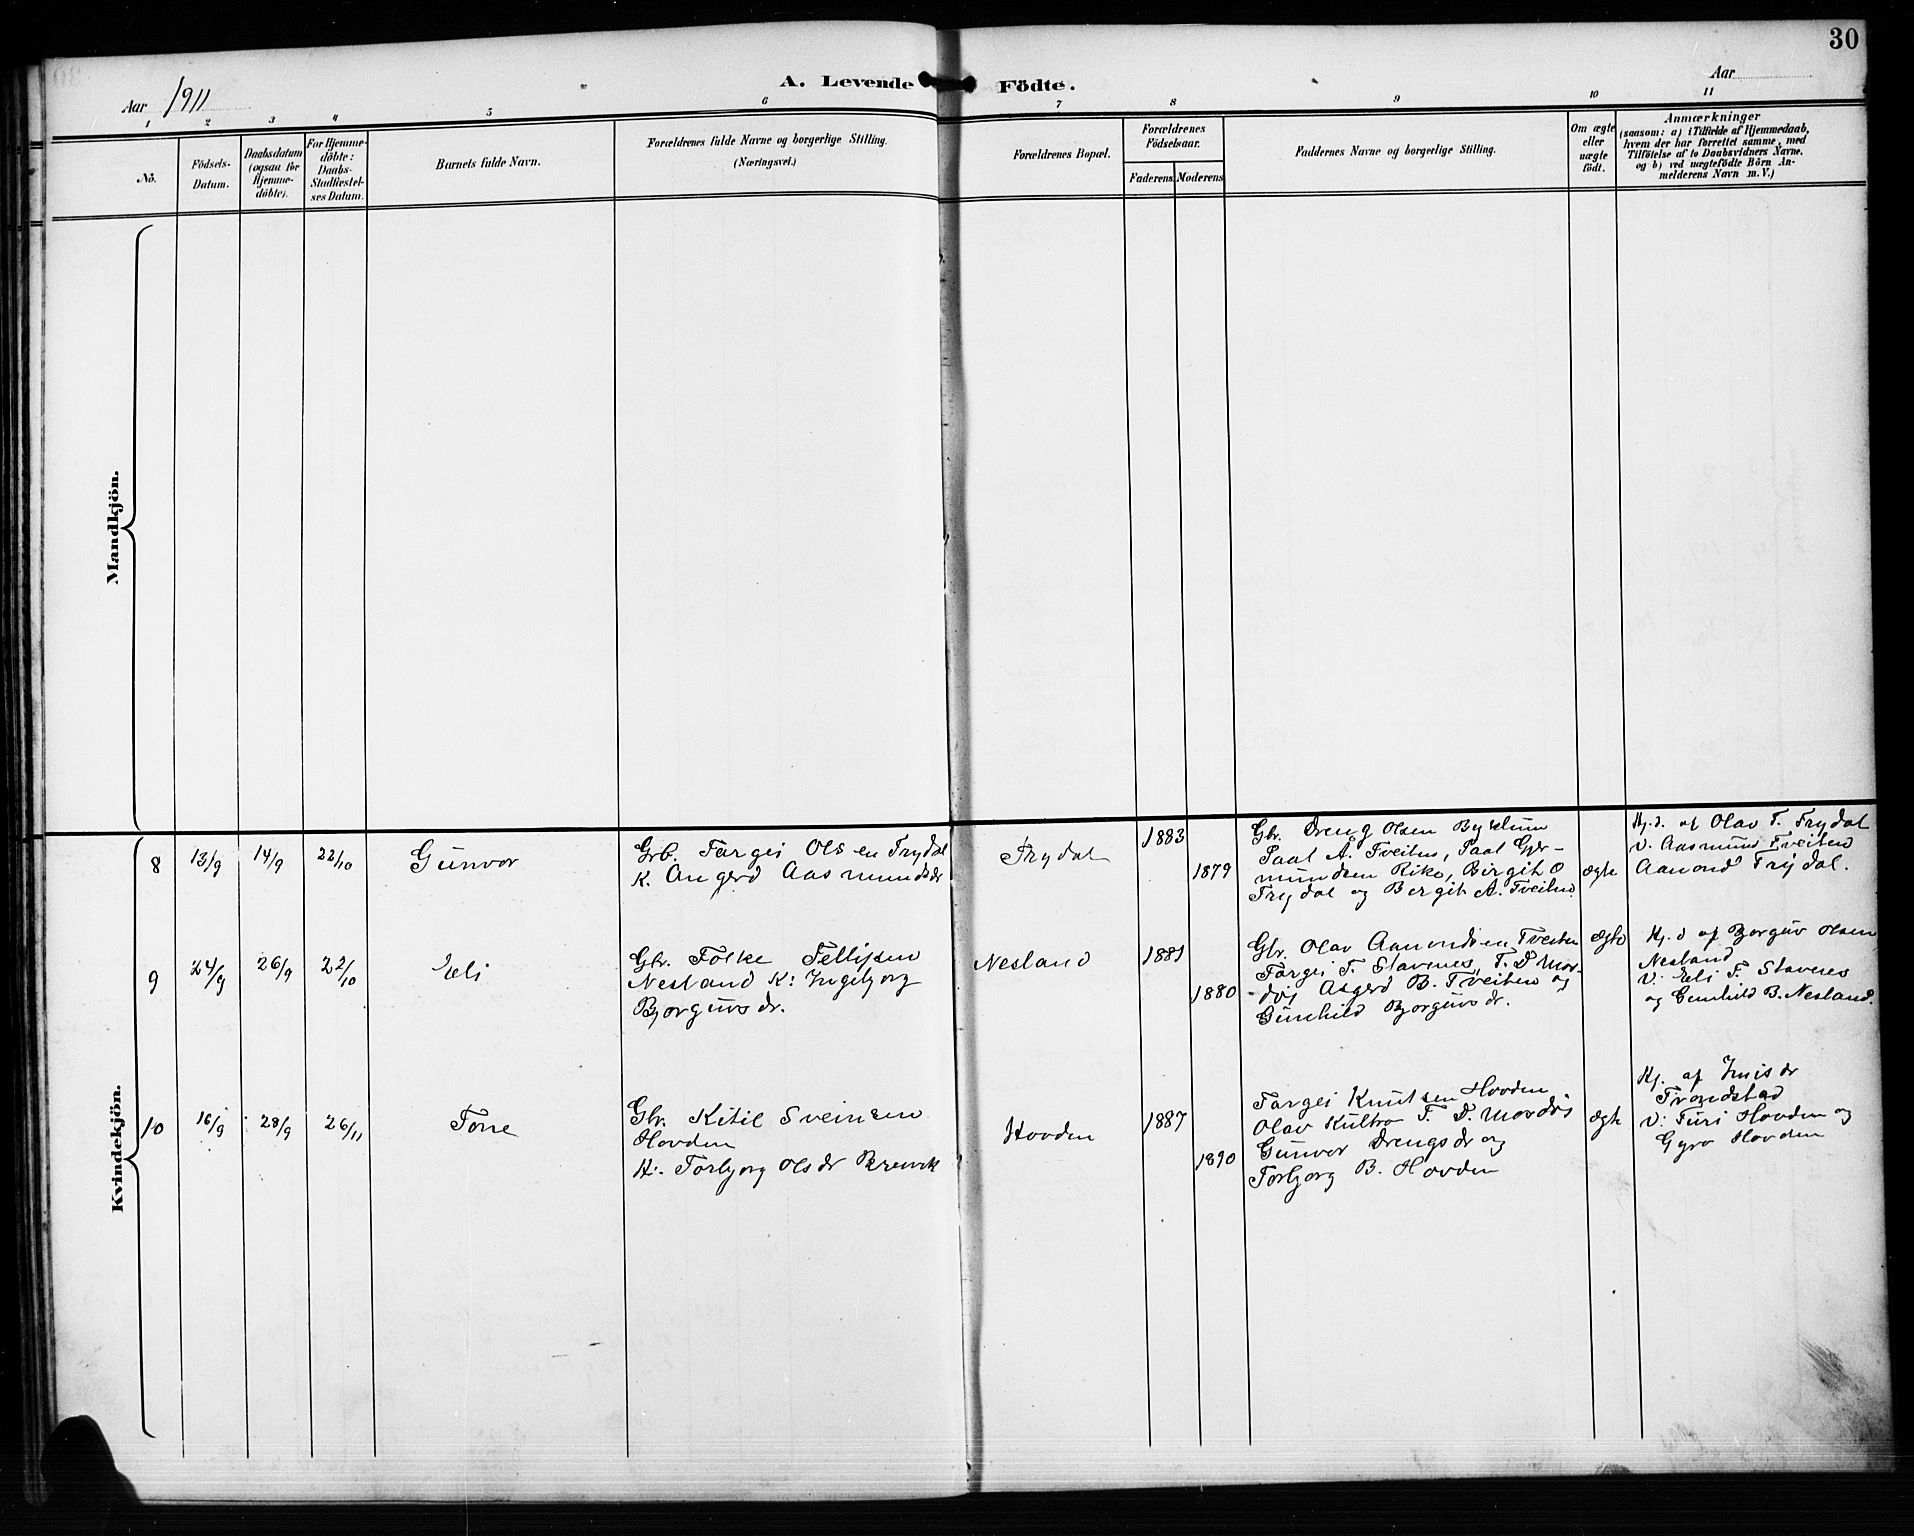 30
A. Levende Födte.
Aar 1911
Aar
1 2 3 4 5 6 7 8 9 10 11
No.
Födsels-
Datum.
Daabsdatum
(ogsaa for
Hjemme-
döbte).
For Hjemme-
döbte:
Daabs-
Stadfæstel-
ses Datum.
Barnets fulde Navn.
Forældrenes fulde Navne og borgerlige Stilling.
(Næringsvei.)
Forældrenes Bopæl.
Forældrenes
Födselsaar.
Faderens Moderens
Faddernes Navne og borgerlige Stilling.
Om ægte
eller
uægte
födt.
Anmærkninger
(saasom: a) i Tilfælde af Hjemmedaab,
hvem der har forrettet samme, med
Tilföielse af to Daabsvidners Navne.
og b) ved uægtefödte Börn An-
melderens Navn m. V.)
Mandkjön.
Kvindekjön.
8
13/9
14/9
22/10
Gunvor
Grb. Targei Olsen Trydal
K. Angerd Aasmundsdr
Trydal
1883
1879
Gbr. Dreng Olsen Bykelum
Paal A. Tveiten, Paal Gjer-
mundsen Rike, Birgit O
Trydal og Bergit A. Tveiten.
ægte
Hj.d. af Olav T. Trydal
V: Aasmund Tveiten
Aanond Trydal.
9
24/9
26/9
22/10
Eli
Gbr. Folke Tellefsen
Nesland K: Ingebjorg
Bjorguvsdr.
Nesland
1881
1880
Gbr. Olav Aanondsen Tveiten
Targei T. Stavenes, T. D. Mor-
døj Asgerd B. Tveiten og
Gunhild Bjorguvsdr.
ægte
Hj.d af Bjorguv Olsen
Nesland
V: Eli T. Stavenes
og Gunhild B. Nesland.
10
16/9
28/9
26/11
Tone
Gbr. Kitil Sveinsen
Hovden
K: Torbjorg Olsdr Breivik
Hovden
1887
1890
Targei Knutsen Hovden
Olav Kultra T. D. Mordøj
Gunvor Drengsdr og
Torbjorg B. Hovden
ægte
Hj. af
Trondstad
V: Turi Hovden og
Gyro Hovden